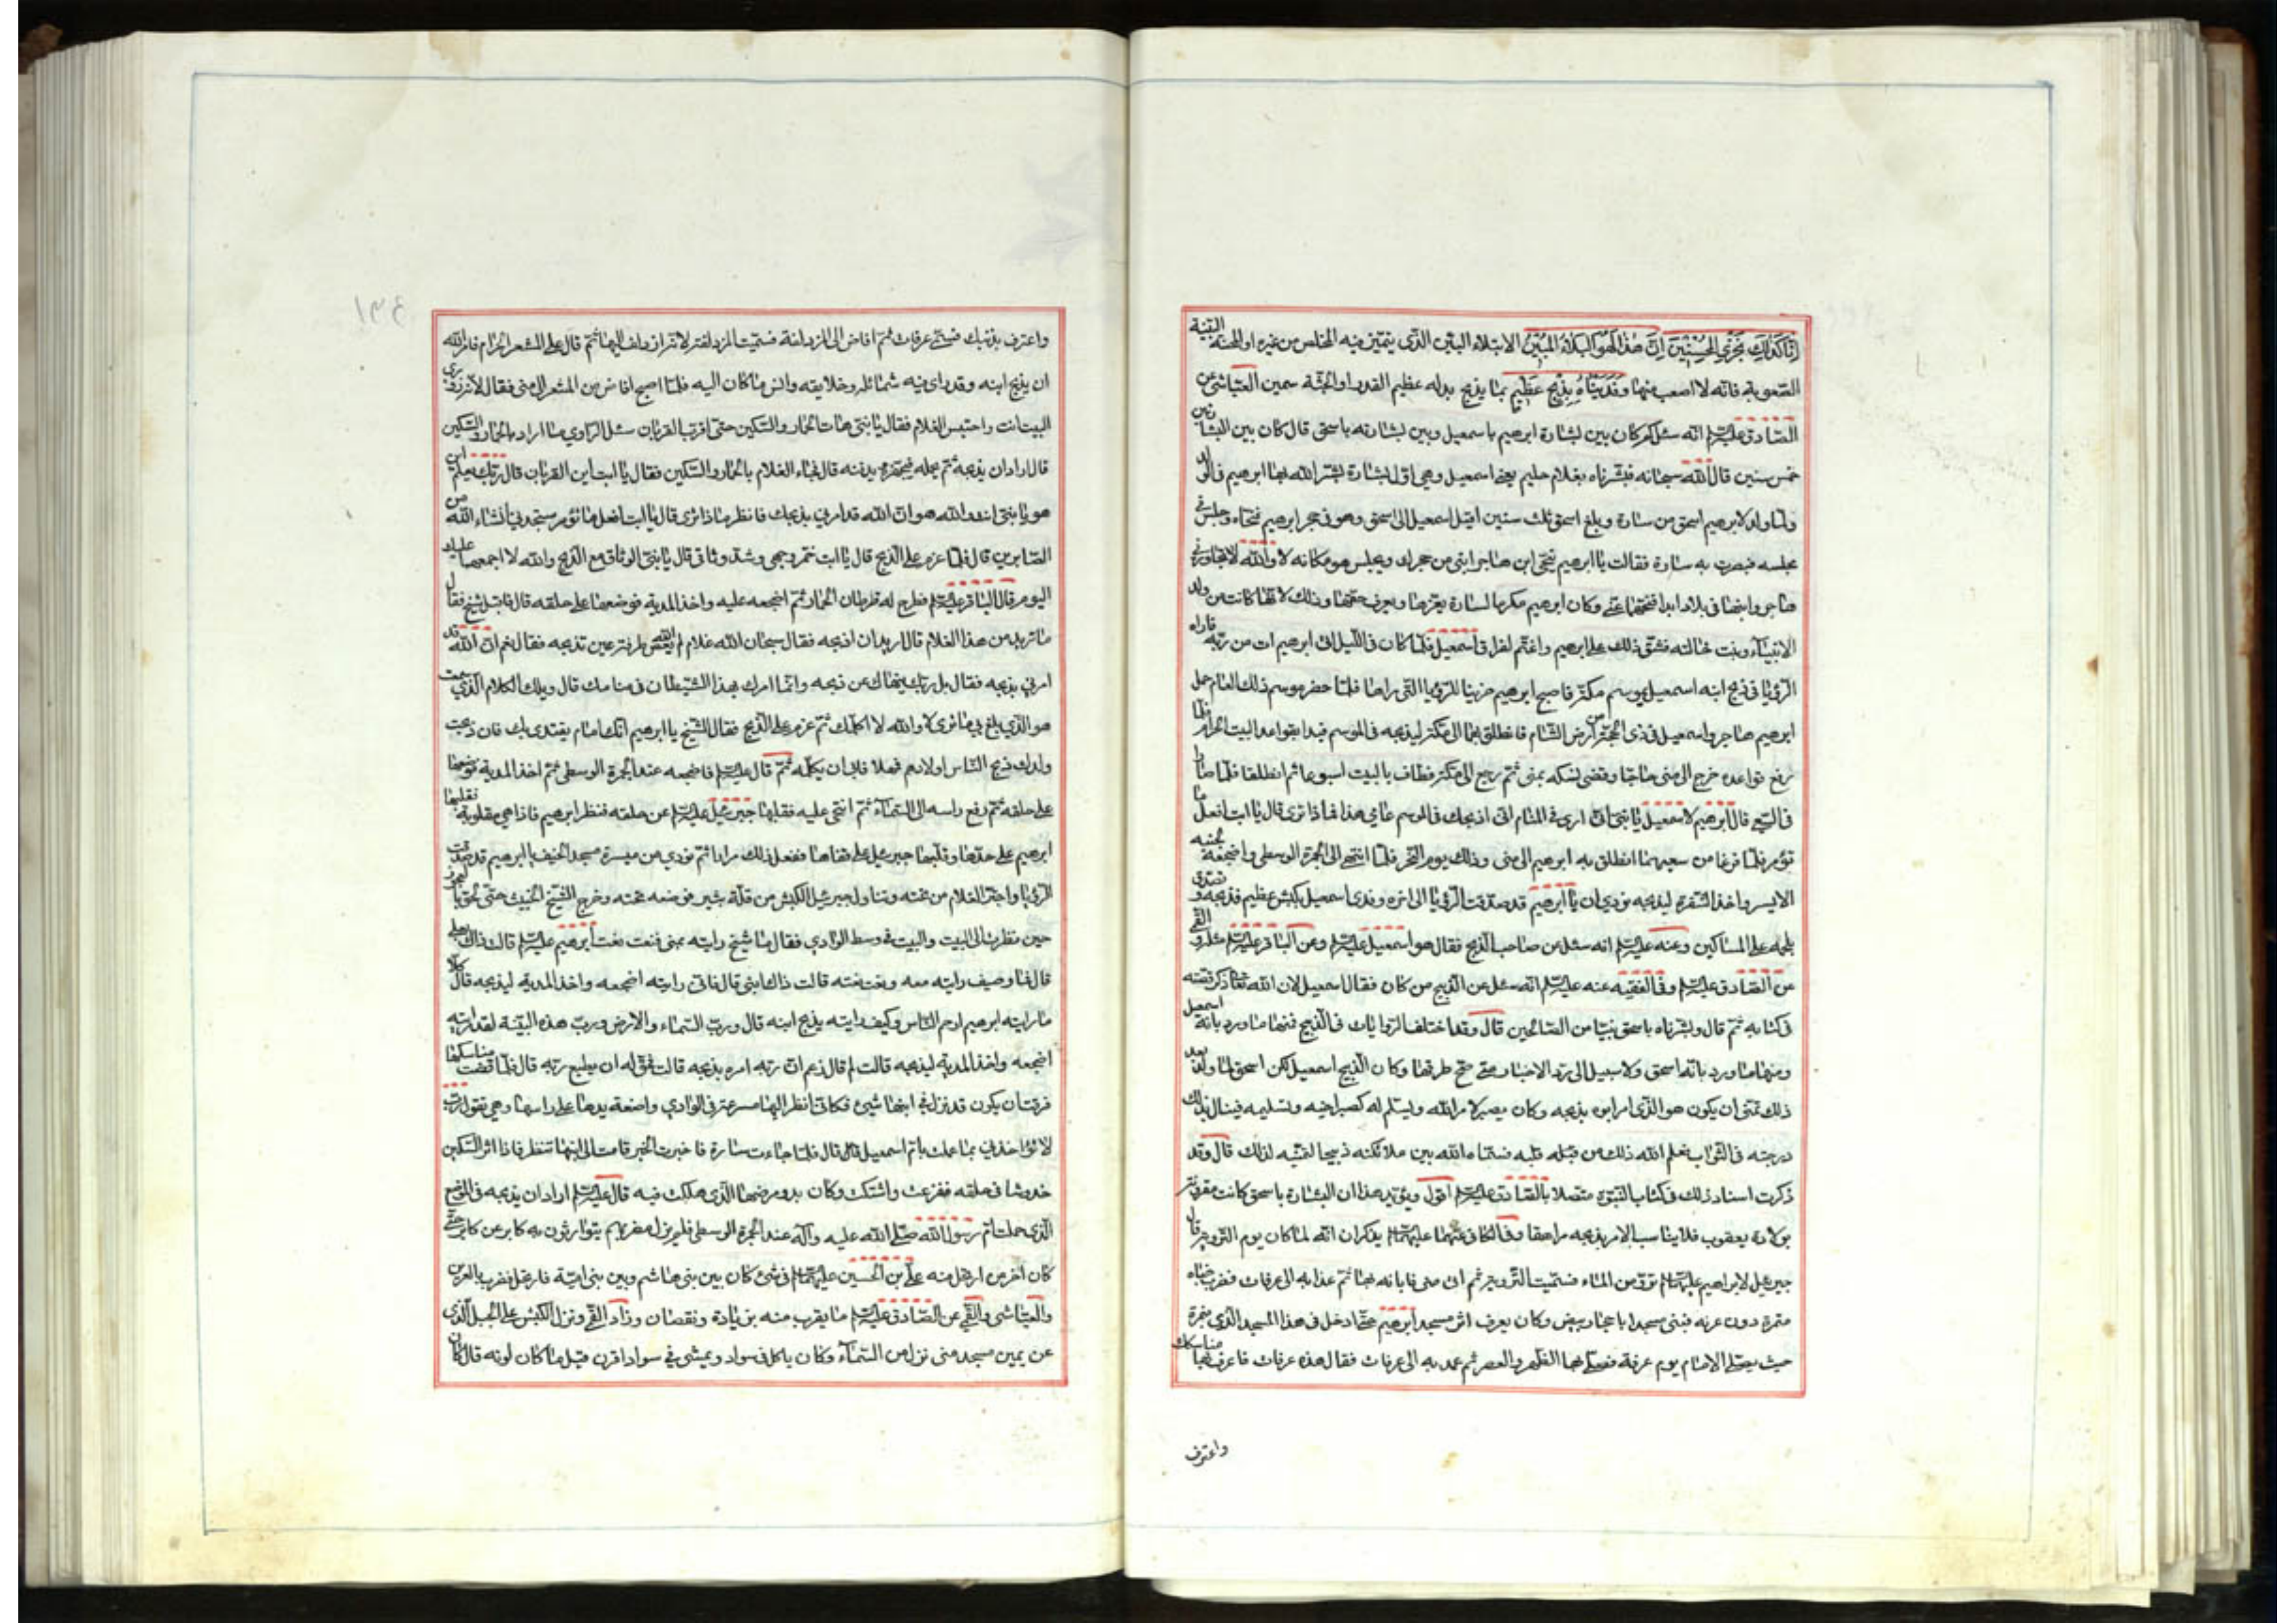 إنا كذلك نجزي المحسنين إن هذا لهو البلاء المبين الابتلاء البين الذي يتميز فيه المخلص من غيره او المحنة البينة
الصعوبة فانه لا اصعب منها وفديناه بذبح عظيم بما يذبح بدله عظيم القدر او الجثة سمين العياشي عن
الصادق عليه السلم انه سئل كم كان بين بشارة ابرهيم باسمعيل وبين بشارته باسحق قال كان بين البشارتين
خمس سنين قال الله سبحانه فبشرناه بغلام حليم يعني اسمعيل وهي اول بشارة بشر الله بها ابرهيم في الولد
ولما ولد لابرهيم اسحق من سارة وبلغ اسحق ثلث سنين اقبل اسمعيل الى اسحق وهو في حجر ابرهيم فنحاه وجلس في
مجلسه فبصرت به سارة فقالت يا ابرهيم ينحي ابن هاجر ابني من حجرك ويجلس هو مكانه لا والله لا تجاورني
هاجر وابنها في بلاد ابدا فنحهما عني وكان ابرهيم مكرما لسارة يعزها ويعرف حقها وذلك لانها كانت من ولد
الانبياء وبنت خالته فشق ذلك على ابرهيم واغتم لفراق اسمعيل فلما كان في الليل اتى ابرهيم ات من ربه فاراه
الرؤيا في ذبح ابنه اسمعيل بموسم مكة فاصبح ابرهيم حزينا للرؤيا التي راها فلما حضر موسم ذلك العام حمل
ابرهيم هاجر واسمعيل في ذي الحجة من ارض الشام فانطلق بهما الى مكة ليذبحه في الموسم فبدا بقواعد البيت الحرام فلما
رفع قواعده خرج الى منى حاجا وقضى نسكه بمنى ثم رجع الى مكة فطاف بالبيت اسبوعا ثم انطلقا فلما صارا
في السعي قال ابرهيم لاسمعيل يا بني اني ارى في المنام اني اذبحك في الموسم عامي هذا فماذا ترى قال يا ابت افعل ما
تؤمر فلما فرغا من سعيهما انطلق به ابرهيم الى منى وذلك يوم النحر فلما انتهى الى الجمرة الوسطى واضجعه لجنبه
الايسر واخذ الشفرة ليذبحه نودي ان يا ابرهيم قد صدقت الرؤيا الى اخره وفدي اسمعيل بكبش عظيم فذبحه وتصدق
بلحمه على المساكين وعنه عليه السلم انه سئل عن صاحب الذبح فقال هو اسمعيل عليه السلم وعن الباقر عليه السلم مثله والقمي
عن الصادق عليه السلم وفي الفقيه عنه عليه السلم انه سئل عن الذبيح من كان فقال اسمعيل لان الله تعالى ذكر قصته
في كتابه ثم قال وبشرناه باسحق نبيا من الصالحين قال وقد اختلف الروايات في الذبيح فمنها ما ورد بانه اسمعيل
ومنها ما ورد بانه اسحق ولا سبيل الى رد الاخبار متى صح طرقها وكان الذبيح اسمعيل لكن اسحق لما ولد بعد
ذلك تمنى ان يكون هو الذي امر ابوه بذبحه وكان يصبر لامر الله ويسلم له كصبر اخيه وتسليمه فينال بذلك
درجته في الثواب فعلم الله ذلك من قبله فسماه الله بين ملائكته ذبيحا لتمنيه لذلك قال وقد
ذكرت اسناد ذلك في كتاب النبوة متصلا بالصادق عليه السلم اقول ويؤيد هذا ان البشارة باسحق كانت مقرونة
بولادة يعقوب فلا يناسب الامر بذبحه مراهقا وفي الكافي عنهما عليهما السلم يذكران انه لما كان يوم التروية قال
جبرئيل لابراهيم عليهما السلم تروه من الماء فسميت التروية ثم اتى منى فاباته بها ثم غدا به الى عرفات فضرب خباه
بنمرة دون عرنه فبنى مسجدا باحجار بيض وكان يعرف اثر مسجد ابرهيم حتى ادخل في هذا المسجد الذي بنمرة
حيث يصلي الامام يوم عرفة فصلى بها الظهر والعصر ثم عمد به الى عرفات فقال هذه عرفات فاعرف بها مناسكك
واعترف
١٣٤
واعترف بذنبك فسمي عرفات ثم افاض الى المزدلفة فسميت المزدلفة لانه ازدلف اليها ثم قام على المشعر الحرام فامره الله
ان يذبح ابنه وقد راى فيه شمائله وخلايقه وانس ما كان اليه فلما اصبح افاض من المشعر الى منى فقال لامه زوري
البيت انت واحتبس الغلام فقال يا بني هات الحمار والسكين حتى اقرب القربان سئل الراوي ما اراد بالحمار والسكين
قال اراد ان يذبحه ثم يحمله فيجهزه ويدفنه قال فجاء الغلام بالحمار والسكين فقال يا ابت اين القربان قال ربك يعلم اين
هو يا بني انت والله هو ان الله قد امرني بذبحك فانظر ماذا ترى قال يا ابت افعل ما تؤمر ستجدني انشاء الله من
الصابرين قال فلما عزم على الذبح قال يا ابت خمر وجهي وشد وثاقي قال يا بني الوثاق مع الذبح والله لا اجمعهما عليك
اليوم قال الباقر عليه السلم فطرح له قرطان الحمار ثم اضجعه عليه واخذ المدية فوضعها على حلقه قال فاقبل شيخ فقال
ما تريد من هذا الغلام قال اريد ان اذبحه فقال سبحان الله غلام لم يعص الله طرفة عين تذبحه فقال نعم ان الله قد
امرني بذبحه فقال بل ربك ينهاك عن ذبحه وانما امرك بهذا الشيطان في منامك قال ويلك الكلام الذي سمعت
هو الذي بلغ بي ما ترى لا والله لا اكلمك ثم عزم على الذبح فقال الشيخ يا ابرهيم انك امام يقتدى بك فان ذبحت
ولدك ذبح الناس اولادهم فمهلا فابى ان يكلمه ثم قال عليه السلم فاضجعه عند الجمرة الوسطى ثم اخذ المدية فوضعها
على حلقه ثم رفع راسه الى السماء ثم انتحى عليه فقلبها جبرئيل عليه السلم عن حلقه فنظر ابرهيم فاذا هي مقلوبة فقلبها
ابرهيم على حدها وقلبها جبرئيل على قفاها ففعل ذلك مرارا ثم نودي من ميسرة مسجد الخيف يا ابرهيم قد صدقت
الرؤيا واجتر الغلام من تحته وتناول جبرئيل الكبش من قلة ثبير فوضعه تحته وخرج الشيخ الخبيث حتى لحق بالعجوز
حين نظرت الى البيت والبيت في وسط الوادي فقال ما شيخ رايته بمنى فنعت نعت ابرهيم عليه السلم قالت ذاك بعلي
قال فما وصيف رايته معه ونعت نعته قالت ذاك ابني قال فاني رايته اضجعه واخذ المدية ليذبحه قالت كلا
ما رايته ابرهيم ارحم الناس وكيف رايته يذبح ابنه قال ورب السماء والارض ورب هذه البنية لقد رايته
اضجعه واخذ المدية ليذبحه قالت لم قال زعم ان ربه امره بذبحه قالت فحق له ان يطيع ربه قال فلما قضت مناسكها
فرقت ان يكون قد نزل في ابنها شيئ فكاني انظر اليها مسرعة في الوادي واضعة يدها على راسها وهي تقول رب
لا تؤاخذني بما عملت بام اسمعيل قال فلما جاءت سارة فاخبرت الخبر قامت الى ابنها تنظر فاذا اثر السكين
خدوشا في حلقه ففزعت واشتكت وكان بدو مرضها الذي هلكت فيه قال عليه السلم اراد ان يذبحه في الموضع
الذي حملت ام رسول الله صلى الله عليه وآله عند الجمرة الوسطى فلم يزل مضربهم يتوارثون به كابر عن كابر حتى
كان اخر من ارتحل منه علي بن الحسين عليهما السلم في شئ كان بين بني هاشم وبين بني امية فارتحل فضرب بالعرين
والعياشي والقمي عن الصادق عليه السلم ما يقرب منه بزيادة ونقصان وزاد القمي ونزل الكبش على الجبل الذي
عن يمين مسجد منى نزل من السماء وكان ياكل في سواد ويمشي في سواد اقرن قيل ما كان لونه قال كان